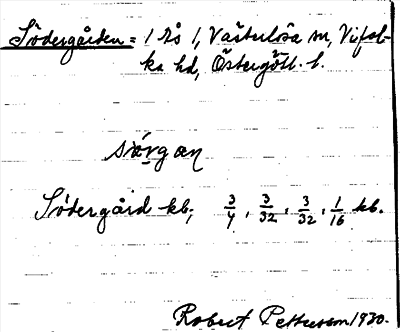 Södergården = 1 Rs 1, Västerlösa sn, Vifol-
ka hd, Östergötl. l.
sǿrgan
Södergård kb; 3/4, 3/32, 3/32, 1/16 kb.
Robert Petterson 1930.